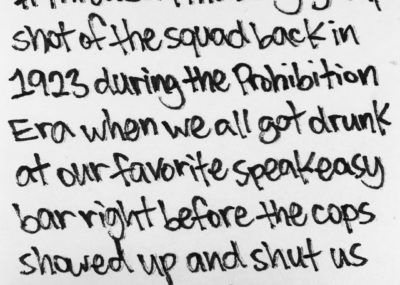 shot of the squad back in
1923 during the Prohibition
Era when we all got drunk
at our favorite speakeasy
bar right before the cops
showed up and shut us